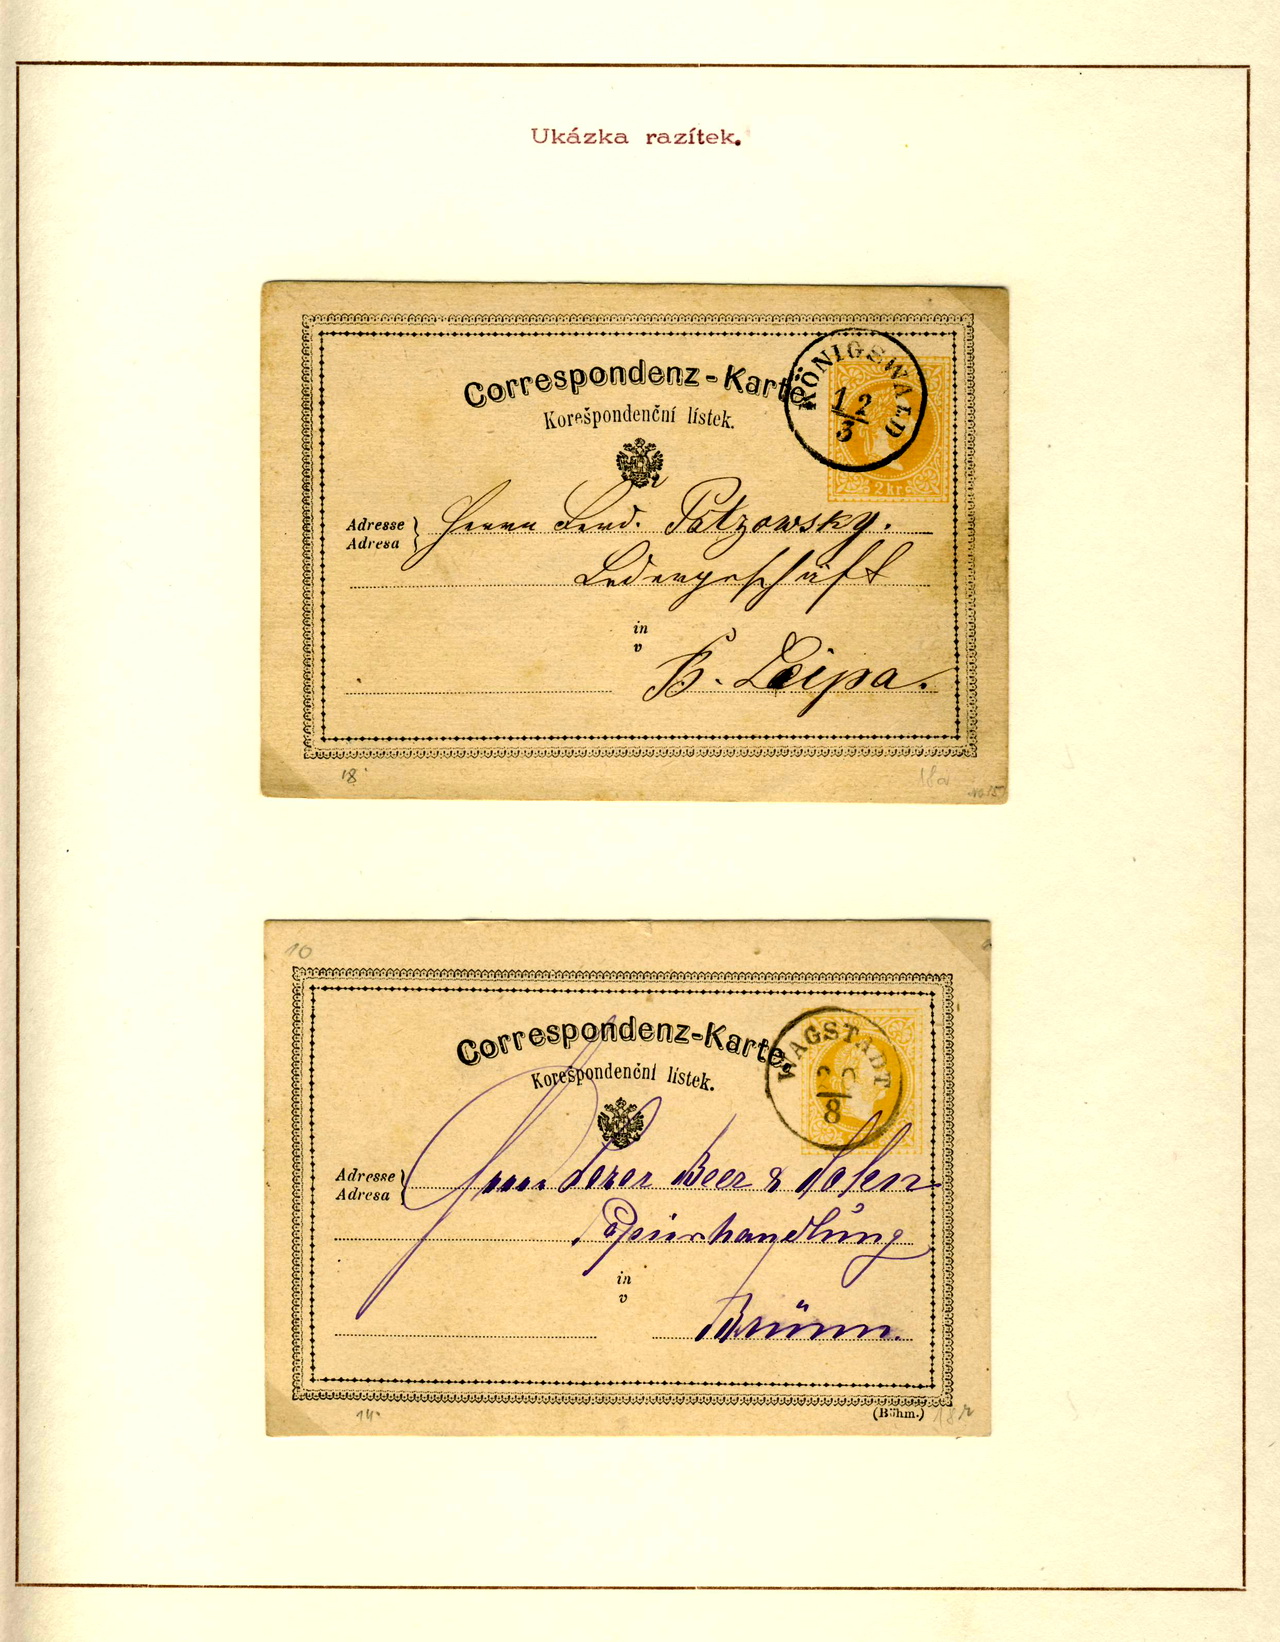 Ukázka razítek.
Correspondenz-Karte.
Korešpondenční lístek.
KÖNIGSWALD
12
3
2 kr
Adresse
Adresa
Herrn Ferd. Patzowsky.
Ledergeschäft
in
v
B. Leipa.
18
18a
No 15
10
Correspondenz-Karte.
Korešpondenční lístek.
WAGSTADT
8
Adresse
Adresa
Herrn Beer &
Papierhandlung
in
v
Brünn.
14
(Böhm.)